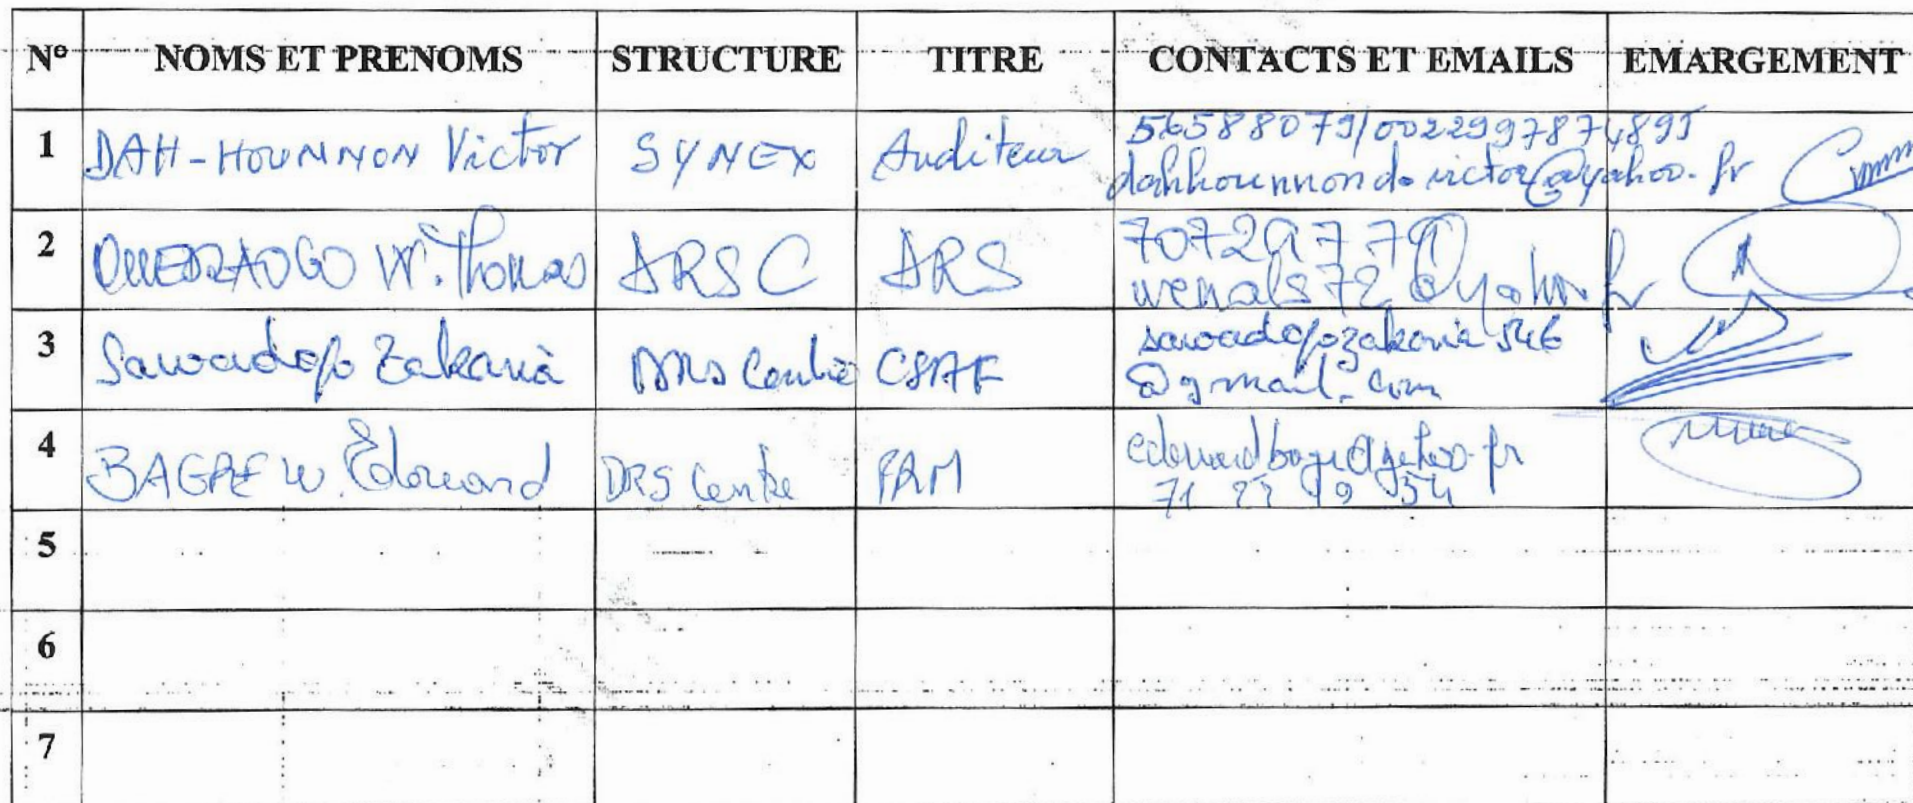 N° NOMS ET PRENOMS STRUCTURE TITRE CONTACTS ET EMAILS EMARGEMENT
1 DAH-HOUNNON Victor SYNEX Auditeur 56588079/0022997874895
dahhounnondo.victor@yahoo.fr
2 OUEDRAOGO W. Thomas DRSC DRS
@yahoo.fr
3 Sawadogo Zakaria DRS Centre CSAF sawadogozakaria546
@gmail.com
4 BAGRE W. Edouard DRS Centre PRM edouardbagre@yahoo.fr
71
5
6
7